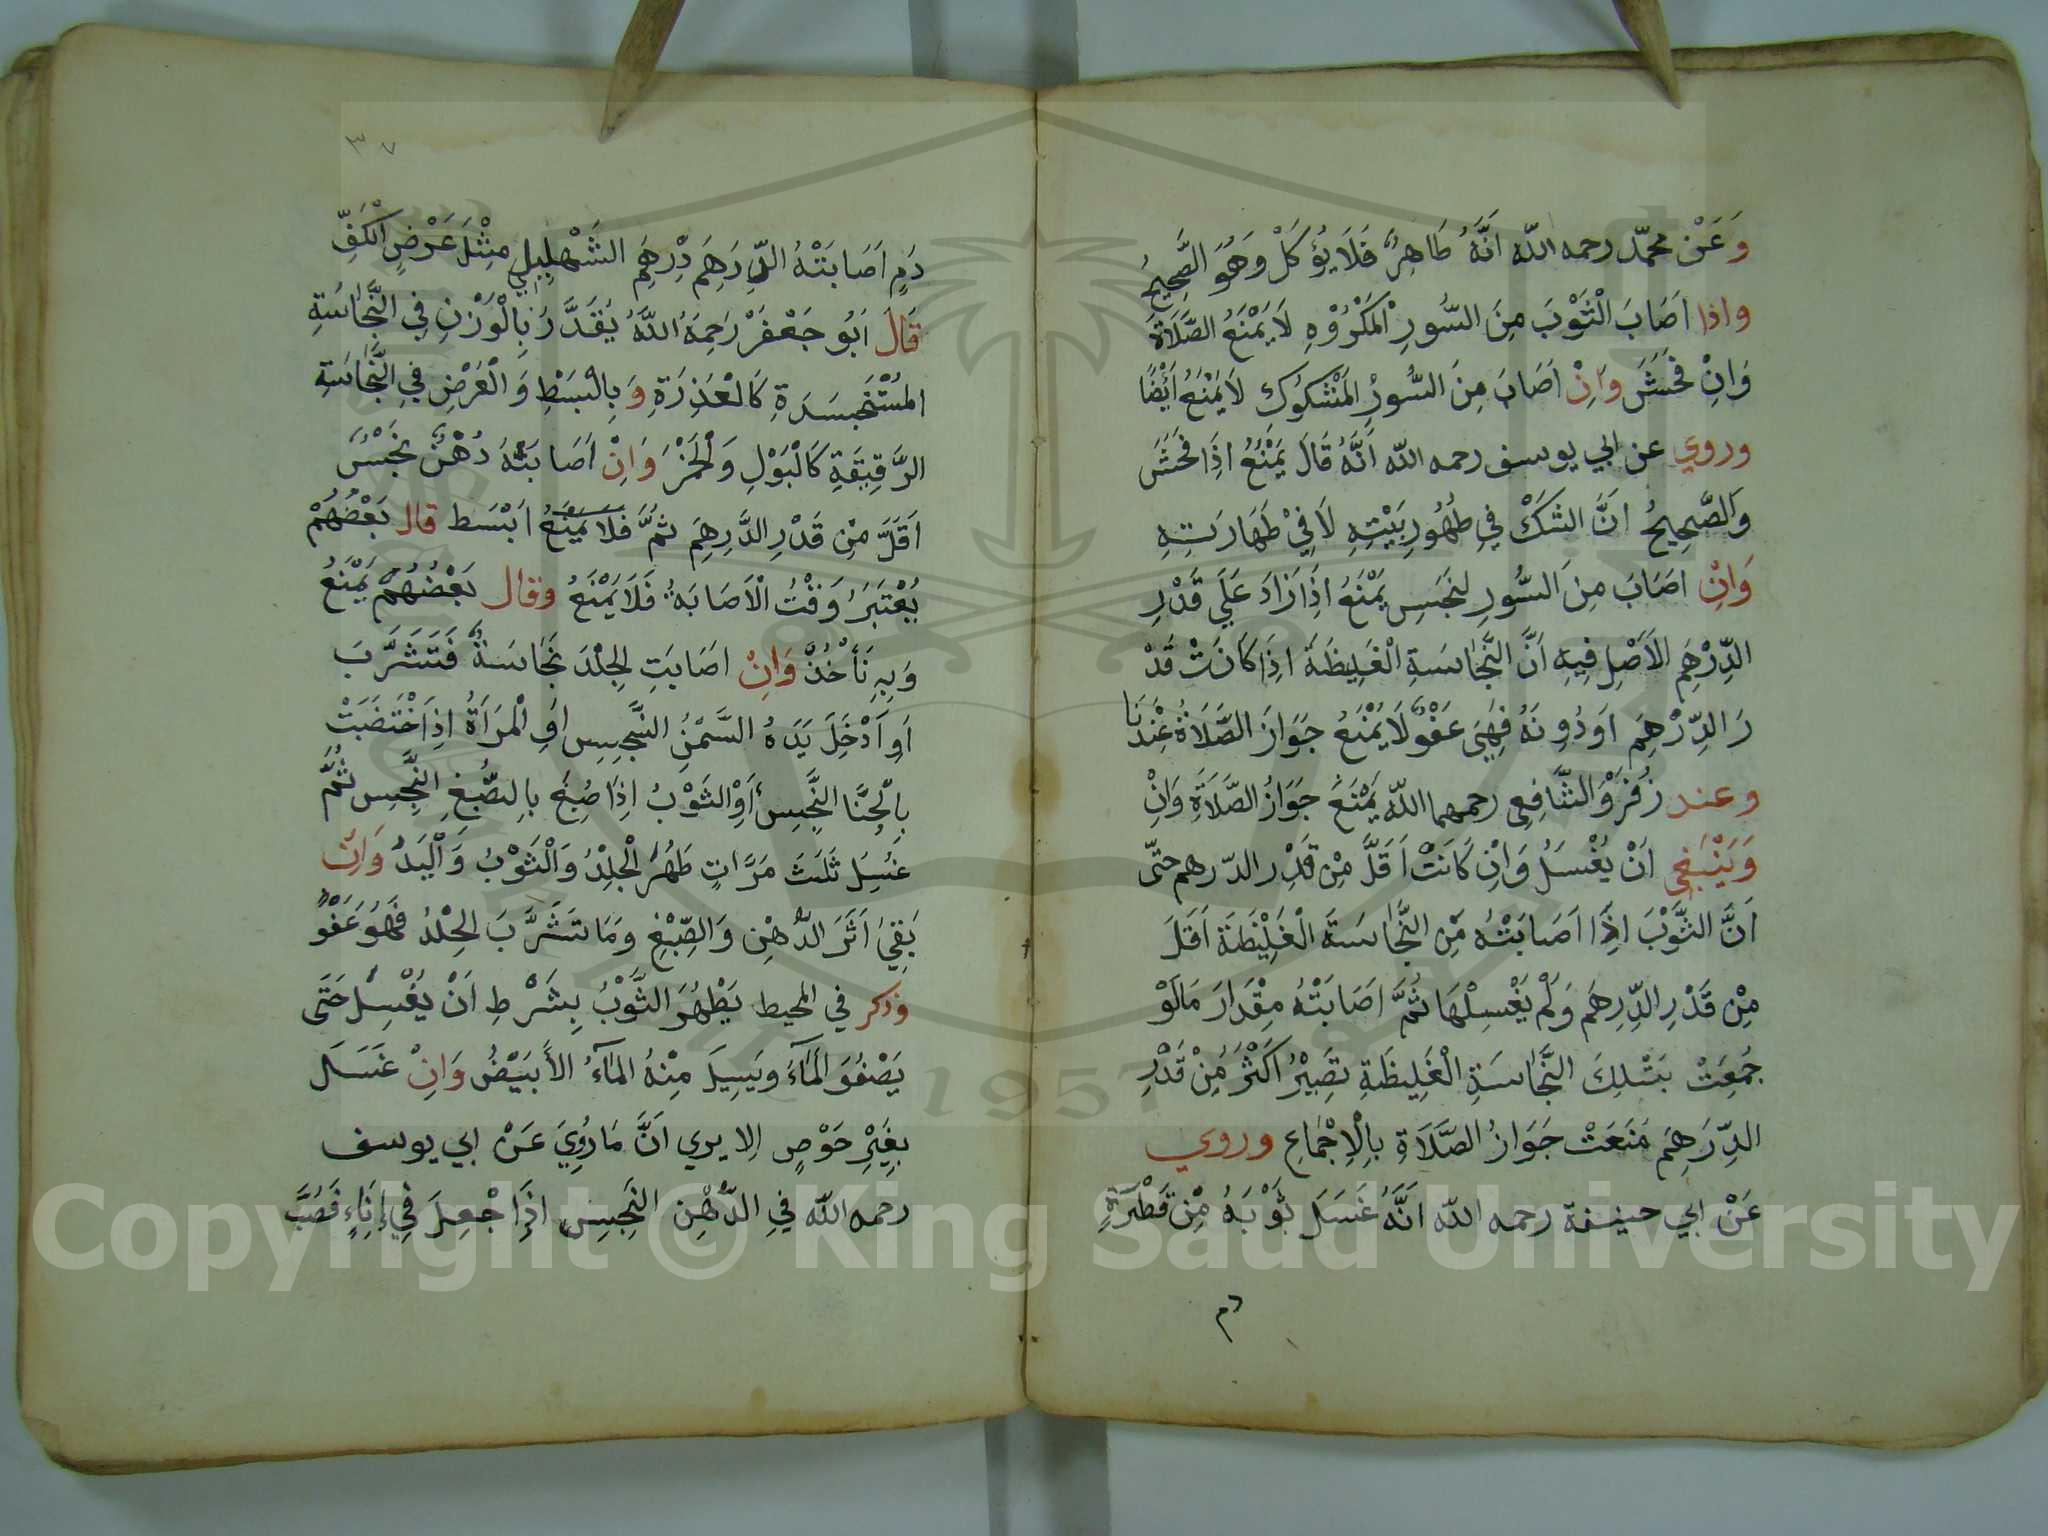 وَعَنْ محمّد رحمه اللّه اَنَّهُ طَاهِرٌ فَلَا يُؤكَلْ وَهُوَ الصَّحِيحُ
واذا اَصَابَ الْثَوْبَ مِنَ السُّورِ الْمَكْرُوْهِ لَا يَمْنَعُ الصَّلَاةَ
وَاِنْ فَحَشَ وَاِنْ اَصَابَ مِنَ السُّورُ المَشْكوُكِ لَا يَمْنَعُ اَيْضًا
وروي عن ابي يوسف رحمه اللّه اَنَّهُ قَالَ يَمْنَعُ اِذَا فَحَشَ
وَالصَّحِيحُ انَّ الشَكْ فِي طَهُورِيَيْتِهِ لَا فِيْ طَهَارَتِهِ
وَاِنْ اصَابَ مِنَ السُّورِ لنجَسِ يَمْنَعُ اِذَا زَادَ عَلَي قَدْرِ
الدِّرْهَمِ الاَصْلِ فِيهِ اَنَّ النَّجَاسَةِ الْغَلِيظَةَ اِذَا كَانَتْ قَدْ
رَ الدِّرْهِمَ اودُونَهُ فَهِىَ عَفْوٌ لَا يُمْنَعُ جَوَازَ الصَّلَاةُ عِنْدَنَا
وعند زُفَرْ وَالشَّافِعِى رحمهما اللّه يَمْنَعَ جَوَازُ الصَّلَاةِ وَاِنْ
وَيَنْبَغِي اَنْ يُغْسَلُ وَاِنْ كَانَتْ اَقَلَّ مِنْ قَدْرِ الدّرهم حتّى
اَنَّ الثَّوْبَ اِذَا اَصَابَتْهُ مِنَ النَّجَاسَةَ الْغَلِيْظَةَ اَقَلَ
مِنْ قَدْرِ الدِّرِهَمِ وَلَمْ يَغْسِلْهَا ثُمَّ اَصَابَتْهُ مِقْدَارَ مَالَوْ
جُمِعَتْ بتلِكَ النَّجَاسَةِ الْغَلِيظَةِ تصِيْرُ اَكْثَرُ مِنْ قَدْرِ
الدِّرَهِمَ مَنَعَتْ جَوَازُ الصَّلَاةِ بالِاِجْمَاعِ وروي
عَنْ ابي حنيفة رحمه اللّه اَنَّهُ غَسَلَ ثَوْبَهُ مِنْ قَطْرَةِ
دم
٣٧
دَمٍ اَصَابَتْهُ الدِّرَهَمَ دِرْهَمَ الشَهْلِيلِي مِثْلَ عَرْضِ الْكَفِّ
قَالَ اَبُو جَعْفَرْ رَحِمَهُ اللّهُ يُقَدَّرُ بِالْوَزْنِ فِي النَّجَاسَةِ
المُسْتَجسَدَةِ كَالْعَذِرَةِ وَبِالْبَسْطِ وَالْعَرْضِ فِي النَّجَاسَةِ
الرَّقِيقَةِ كَالْبَوْلِ وَالْخَمْرَ وَاِنْ اَصَابَتْهُ دُهْنٌ نجَسٌ
اَقَلَّ مِنْ قَدْرِ الدَّرِهَمِ ثمَّ فَلَا يَمْنَعُ ابْسَط قال بَعْضُهُمْ
يُعْتَبَرُ وَقْتُ الْاَصَابَةُ فَلَا يُمْنَعُ وقال بَعْضُهُمْ يَمْنَعُ
وَبِهِ نَأْخُذْ وَاِنْ اصَابَتِ لجِلْدَ نجَاسَةٌ فَتَشَرَّبَ
اَوِ اَدْخَلَ يَدَهُ السَّمْنُ النَّجِسِ اوِ الْمَرَاَةُ اِذَاخْتَضَبَتْ
بِالْحِنَّا النَّجِسِ اَوْ الثَوْبُ اِذَا صُبِغَ بالصُّبْغِ النَّجِسِ ثُمَّ
غسُلِ ثَلَثَ مَرَّاتٍ طَهُرَ الْجلِدُ وَالْثَوْبُ وَالْيَدُ وَاِنْ
بَقِيَ اَثَرَ الدُّهْنِ وَالصِّبْغِ وَمَا تَشَرَّبَ الجِلدُ فَهُوَ عَفْوٌ
وذكر في المحيط يَطْهُرَ الثَّوْبُ بِشَرْطِ اَنْ يغُسِلُ حَتَى
يَصْفُوَ الْمَاءَ وَيَسِيلَ مِنْهُ المَاءُ الاَبيَضُ وَاِنْ غَسَلَ
بغِيَرِ حَوْصٍ اِلا يري اَنَّ مَارُوِيَ عَنْ ابي يوسف
رحمه اللّه فِي الدُّهْنِ النَجِسِ اِذَا جُعِلَ فِي اِنَاءٍ فَصُبَّ
Copyright © King Saud University
1957